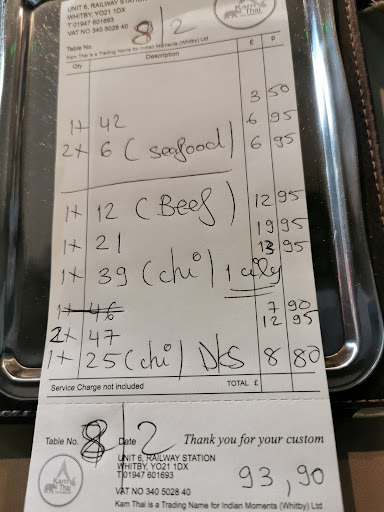 UNIT 6, RAILWAY STATION
WHITBY, YO21 1DX
T 01947 601693
VAT NO 340 5028 40
Kam Thai
Table No. 8/2
Kam Thai is a Trading Name for Indian Moments (Whitby) Ltd
Qty Description £ p
3 50
1x 42 6 95
2x 6 (Seafood) 6 95
1x 12 (Beef) 12 95
1x 21 19 95
1x 39 (chi) 1 13 95
1x 46
2x 47 7 90
1x 25 (chi) 12 95
Dks 8 80
Service Charge not included TOTAL £
Table No. 8 Date 2 Thank you for your custom
UNIT 6, RAILWAY STATION
WHITBY, YO21 1DX
T 01947 601693
93,90
Kam Thai
VAT NO 340 5028 40
Kam Thai is a Trading Name for Indian Moments (Whitby) Ltd